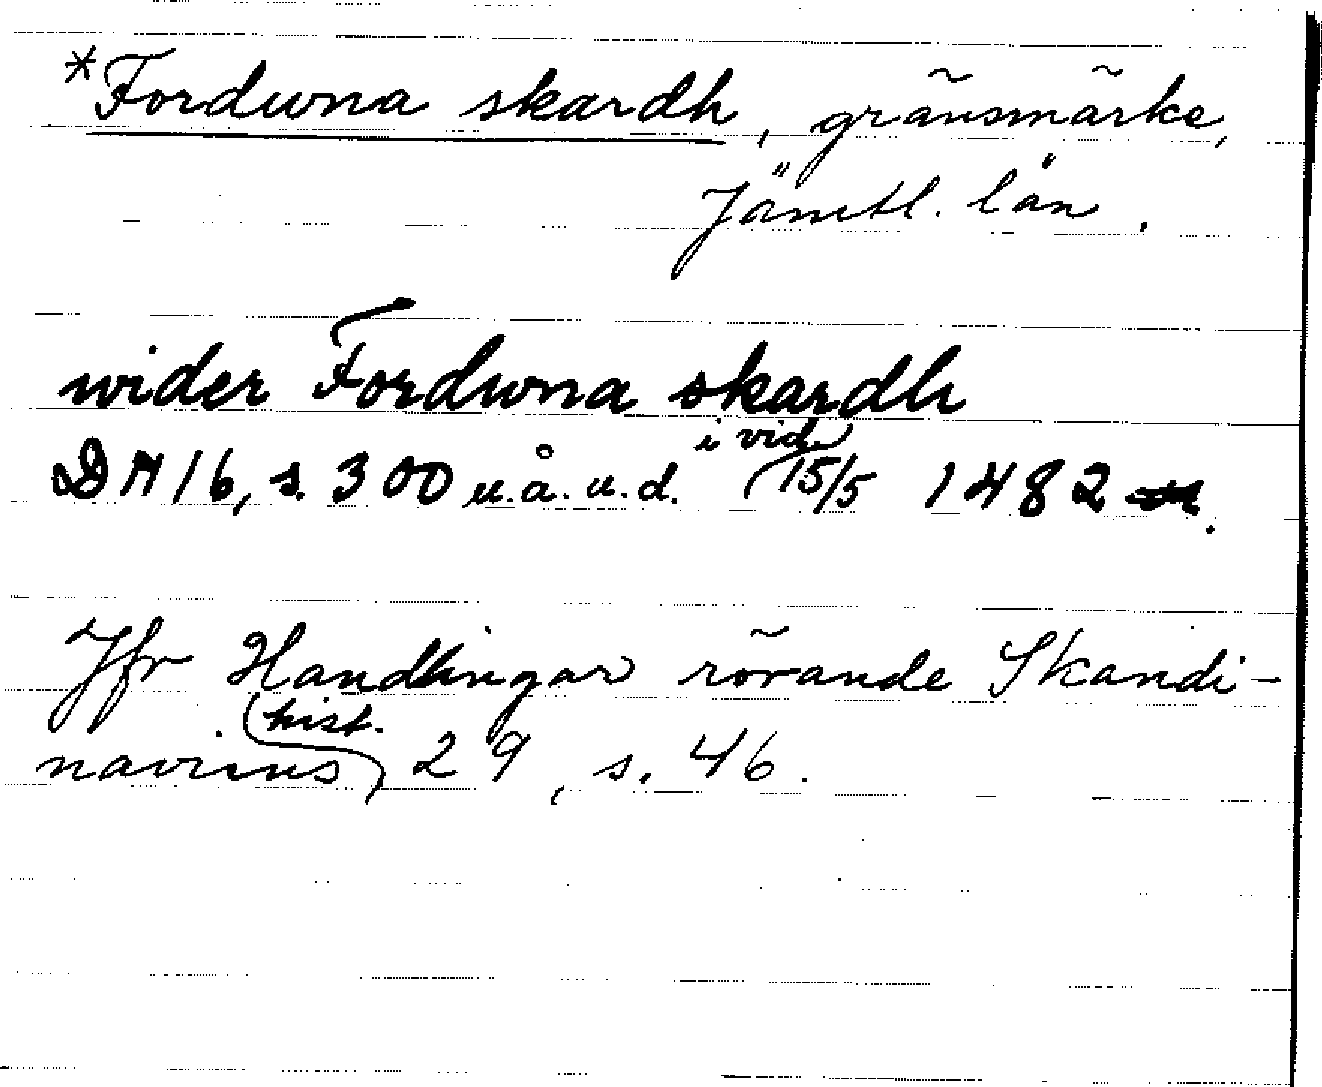 *Forduna skardh, gränsmärke,
Jämtl. län.
wider Forduna skardh
DN 16, s. 300 u.å. u.d. i vid. 15/5 1482.
Jfr Handlingar rörande Skandi-
naviens hist. 29, s. 46.